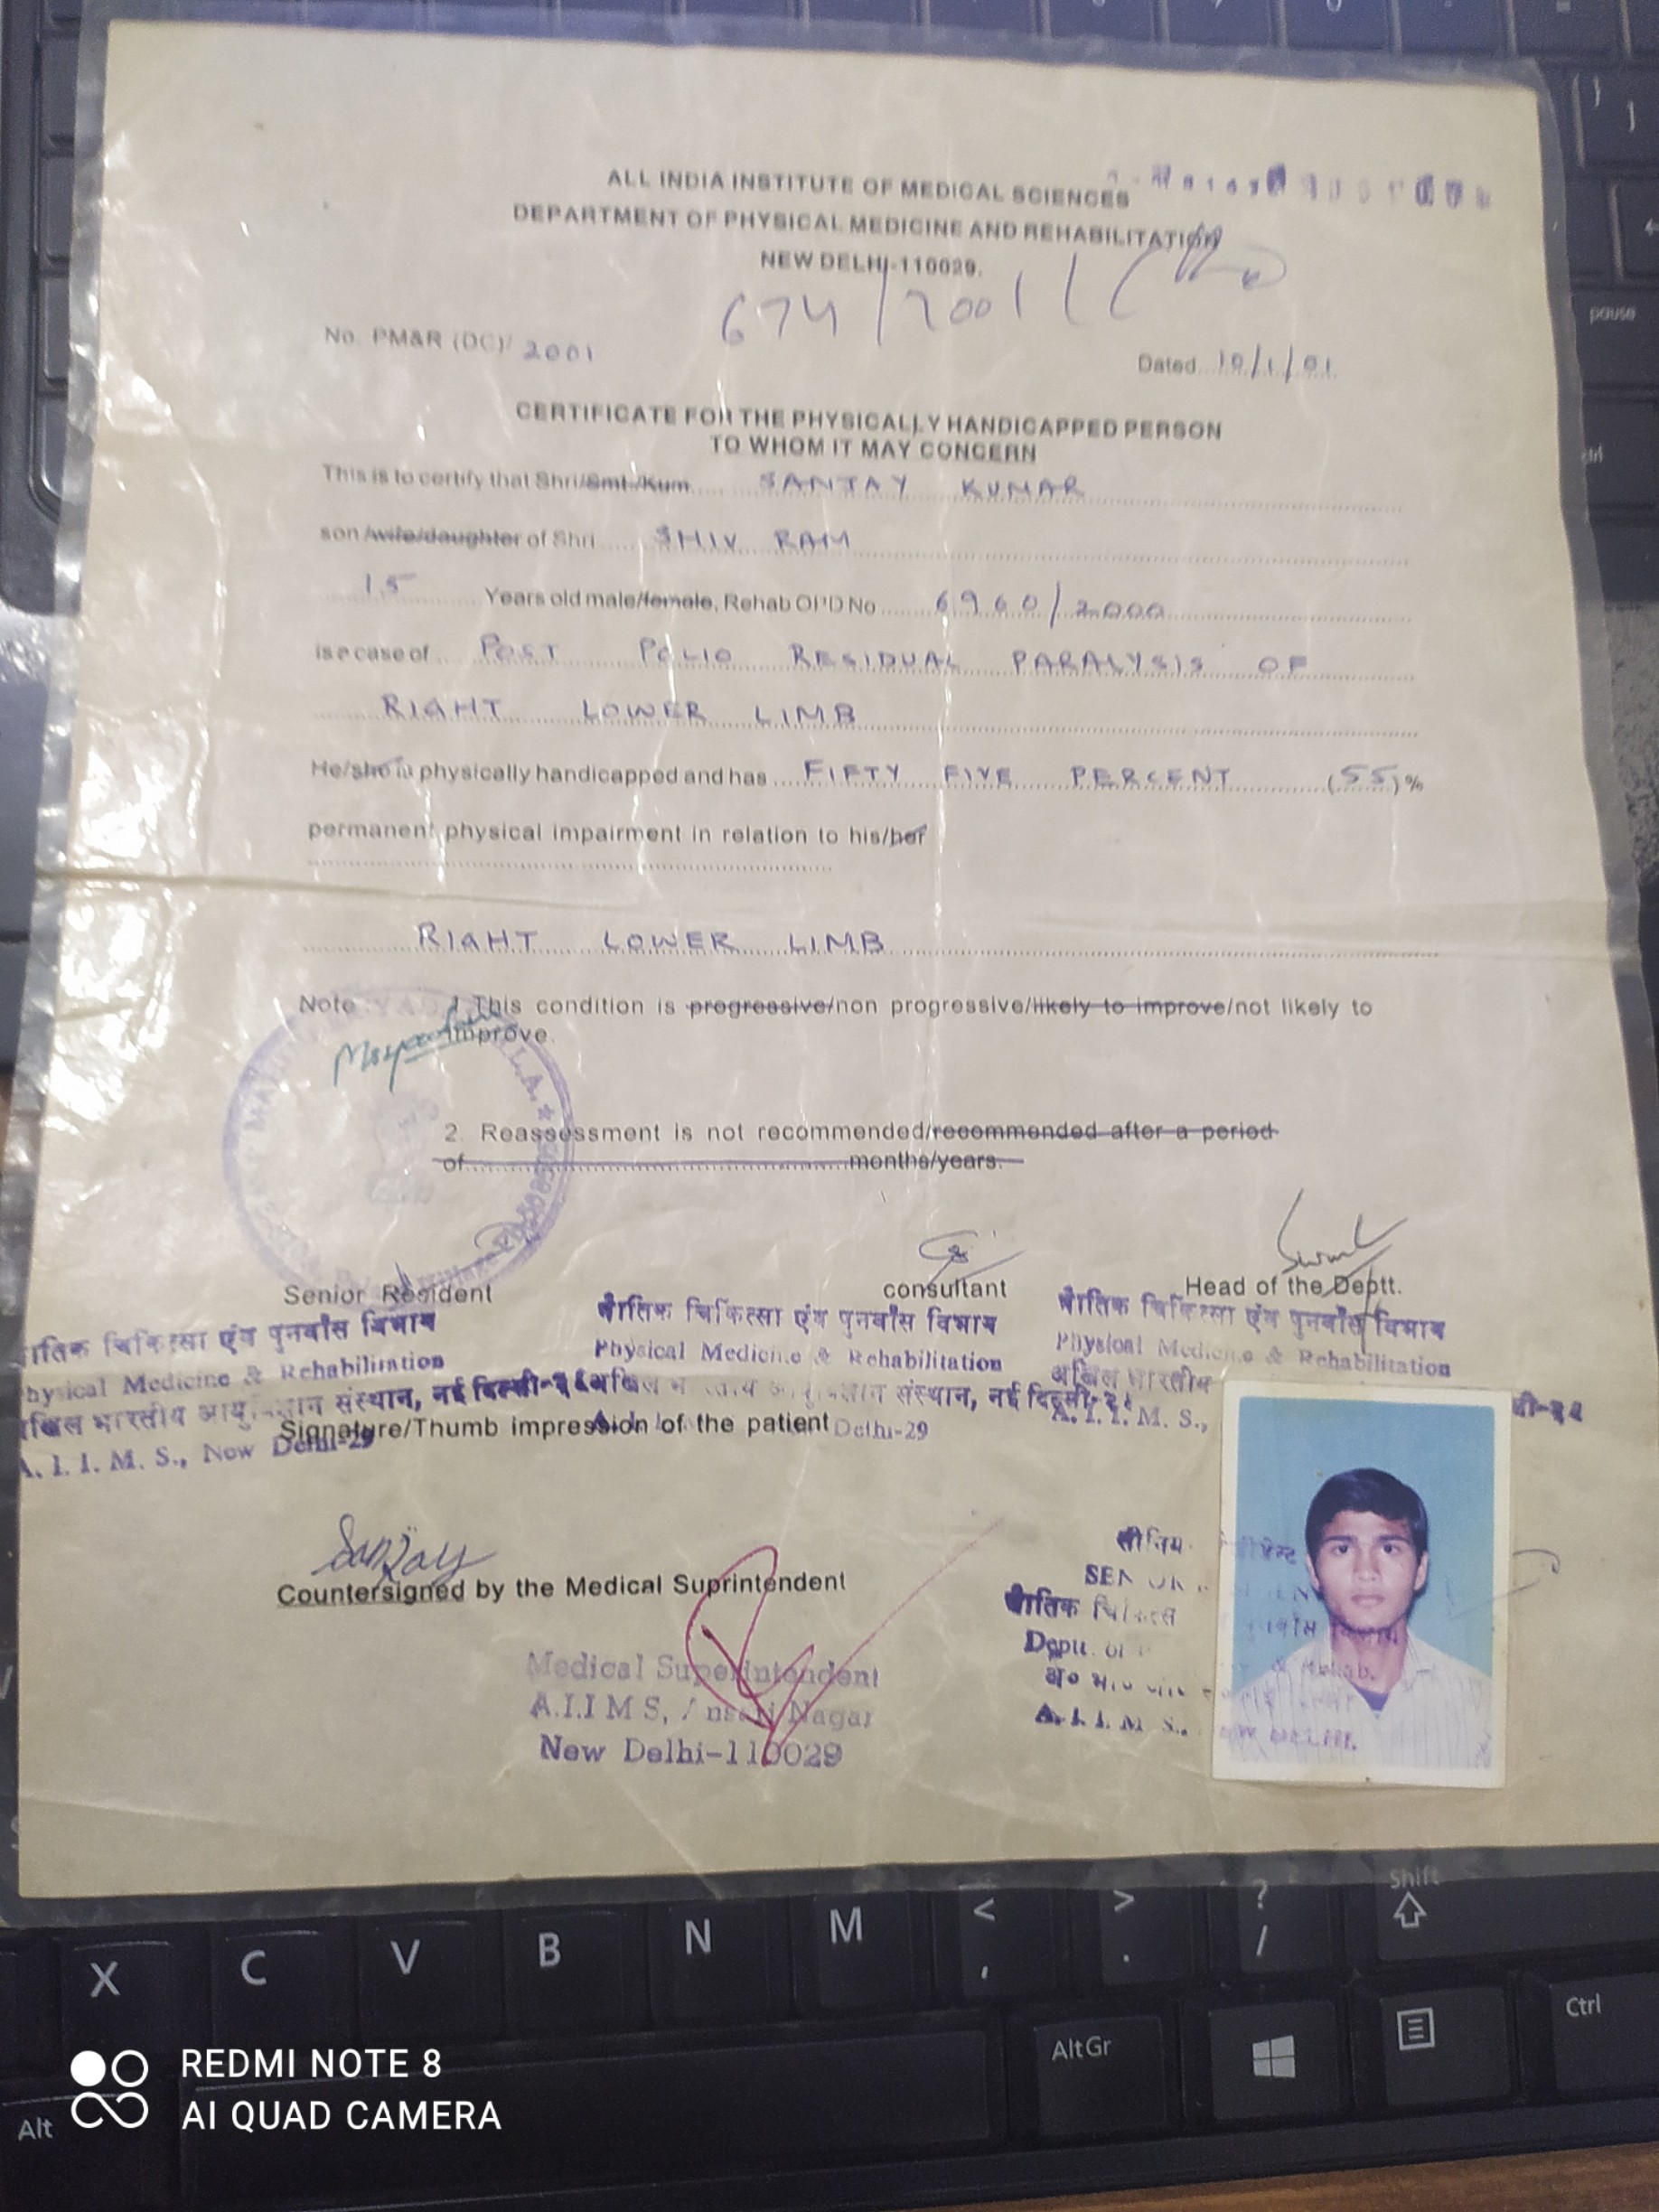 ALL INDIA INSTITUTE OF MEDICAL SCIENCES
DEPARTMENT OF PHYSICAL MEDICINE AND REHABILITATION
NEW DELHI-110029.
674/2001/
No. PM&R (DC)/ 2001
Dated 10/1/01
CERTIFICATE FOR THE PHYSICALLY HANDICAPPED PERSON
TO WHOM IT MAY CONCERN
This is to certify that Shri/Smt./Kum. SANJAY KUMAR
son/wife/daughter of Shri SHIV RAM
15 Years old male/female, Rehab OPD No 6960/2000
is a case of POST POLIO RESIDUAL PARALYSIS OF
RIGHT LOWER LIMB
He/she is physically handicapped and has FIFTY FIVE PERCENT (55)%
permanent physical impairment in relation to his/her
RIGHT LOWER LIMB
Note 1. This condition is progressive/non progressive/likely to improve/not likely to
improve.
2. Reassessment is not recommended/recommended after a period
of months/years.
Senior Resident consultant Head of the Deptt.
चिकित्सा एंव पुनर्वास विभाग
Physical Medicine & Rehabilitation
भारतीय संस्थान, नई
A. I. I. M. S., New Delhi-29
चिकित्सा एंव पुनर्वास विभाग
Physical Medicine & Rehabilitation
संस्थान, नई
Delhi-29
चिकित्सा एंव पुनर्वास विभाग
Physical Medicine & Rehabilitation
भारतीय
A. I. I. M. S.,
Signature/Thumb impression of the patient
Sanjay
Countersigned by the Medical Suprintendent
Medical Superintendent
A.I.I M S, Nagar
New Delhi-110029
A. I. I. M. S.
pause
X C V B N M < , > . ? / Shift
Alt AltGr Ctrl
REDMI NOTE 8
AI QUAD CAMERA